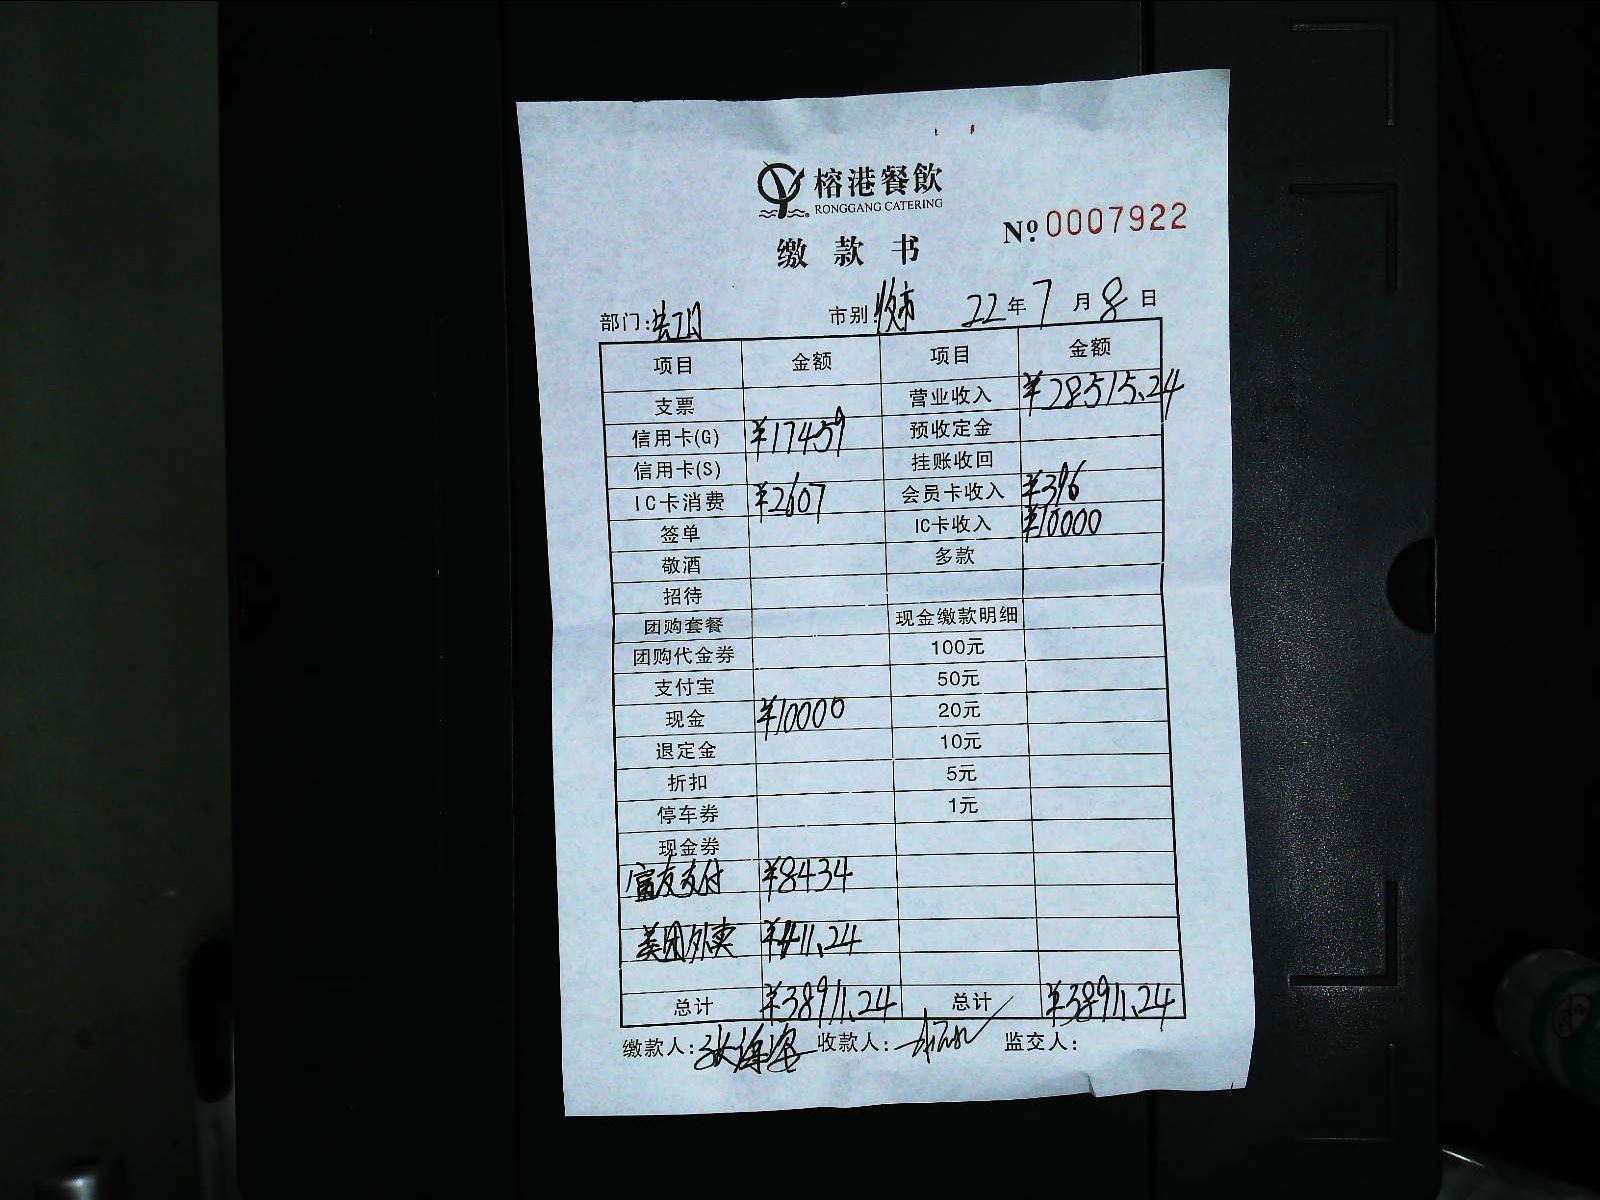 榕港餐飲
RONGGANG CATERING
缴款书
№ 0007922
部门: 市别: 收市 22年7月8日
项目 金额 项目 金额
支票 营业收入 ¥28515.24
信用卡(G) ¥17459 预收定金
信用卡(S) 挂账收回
IC卡消费 ¥2607 会员卡收入 ¥396
签单 IC卡收入 ¥10000
敬酒 多款
招待
团购套餐 现金缴款明细
团购代金券 100元
支付宝 50元
现金 ¥10000 20元
退定金 10元
折扣 5元
停车券 1元
现金券
富友支付 ¥8434
美团外卖 ¥411.24
总计 ¥38911.24 总计 ¥38911.24
缴款人: 收款人: 监交人: